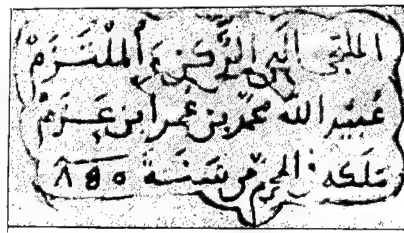 الملتجي الى الركن والملتزم
عبيد الله محمد بن عمر ابن عزم
ملكه المحرم من سنة